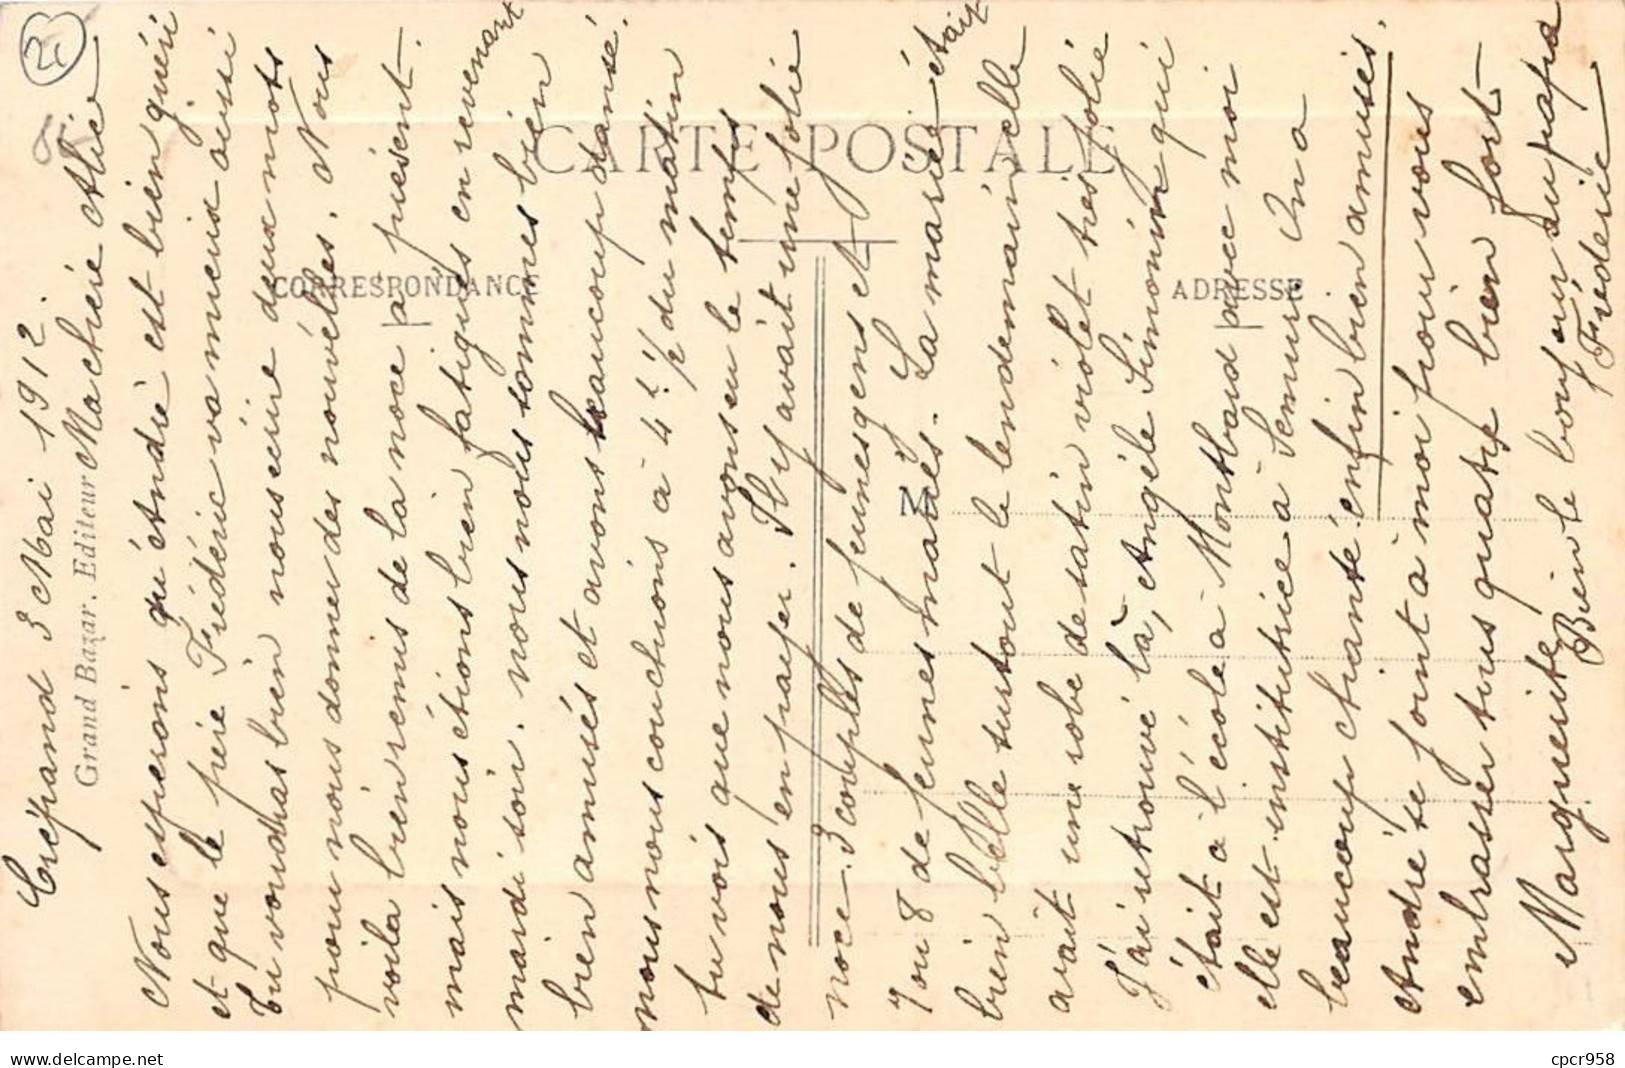 Crépand 3 Mai 1912.
Ma chère Alice
Nous esperons qu'André est bien guéri
et que le père Frédéric va mieux aussi
Tu voudras bien nous écrire deux mots
pour nous donner des nouvelles. Nous
voila bien remis de la noce a présent.
mais nous étions bien fatigués en revenant
mardi soir. nous nous sommes bien
bien amusés et avons beaucoup dansé.
nous nous couchions à 4h 1/2 du matin
tu vois que nous avons eu le temps
de nous en payer. Il y avait une jolie
noce. 3 couples de jeunes gens et
7 ou 8 de jeunes mariés. La mariée était
bien belle surtout le lendemain elle
avait une robe de satin violet très jolie
J'ai retrouvé là, Angèle Simonin qui
était à l'école à Montbard avec moi
elle est institutrice à Semur. On a
beaucoup chanté enfin bien amusés.
André se joint à moi pour vous
embrasser tous quatre bien fort
Marguerite
Bien le bonjour au papa
Frédéric
CARTE POSTALE
CORRESPONDANCE
ADRESSE
Grand Bazar. Editeur
www.delcampe.net
cpcr958